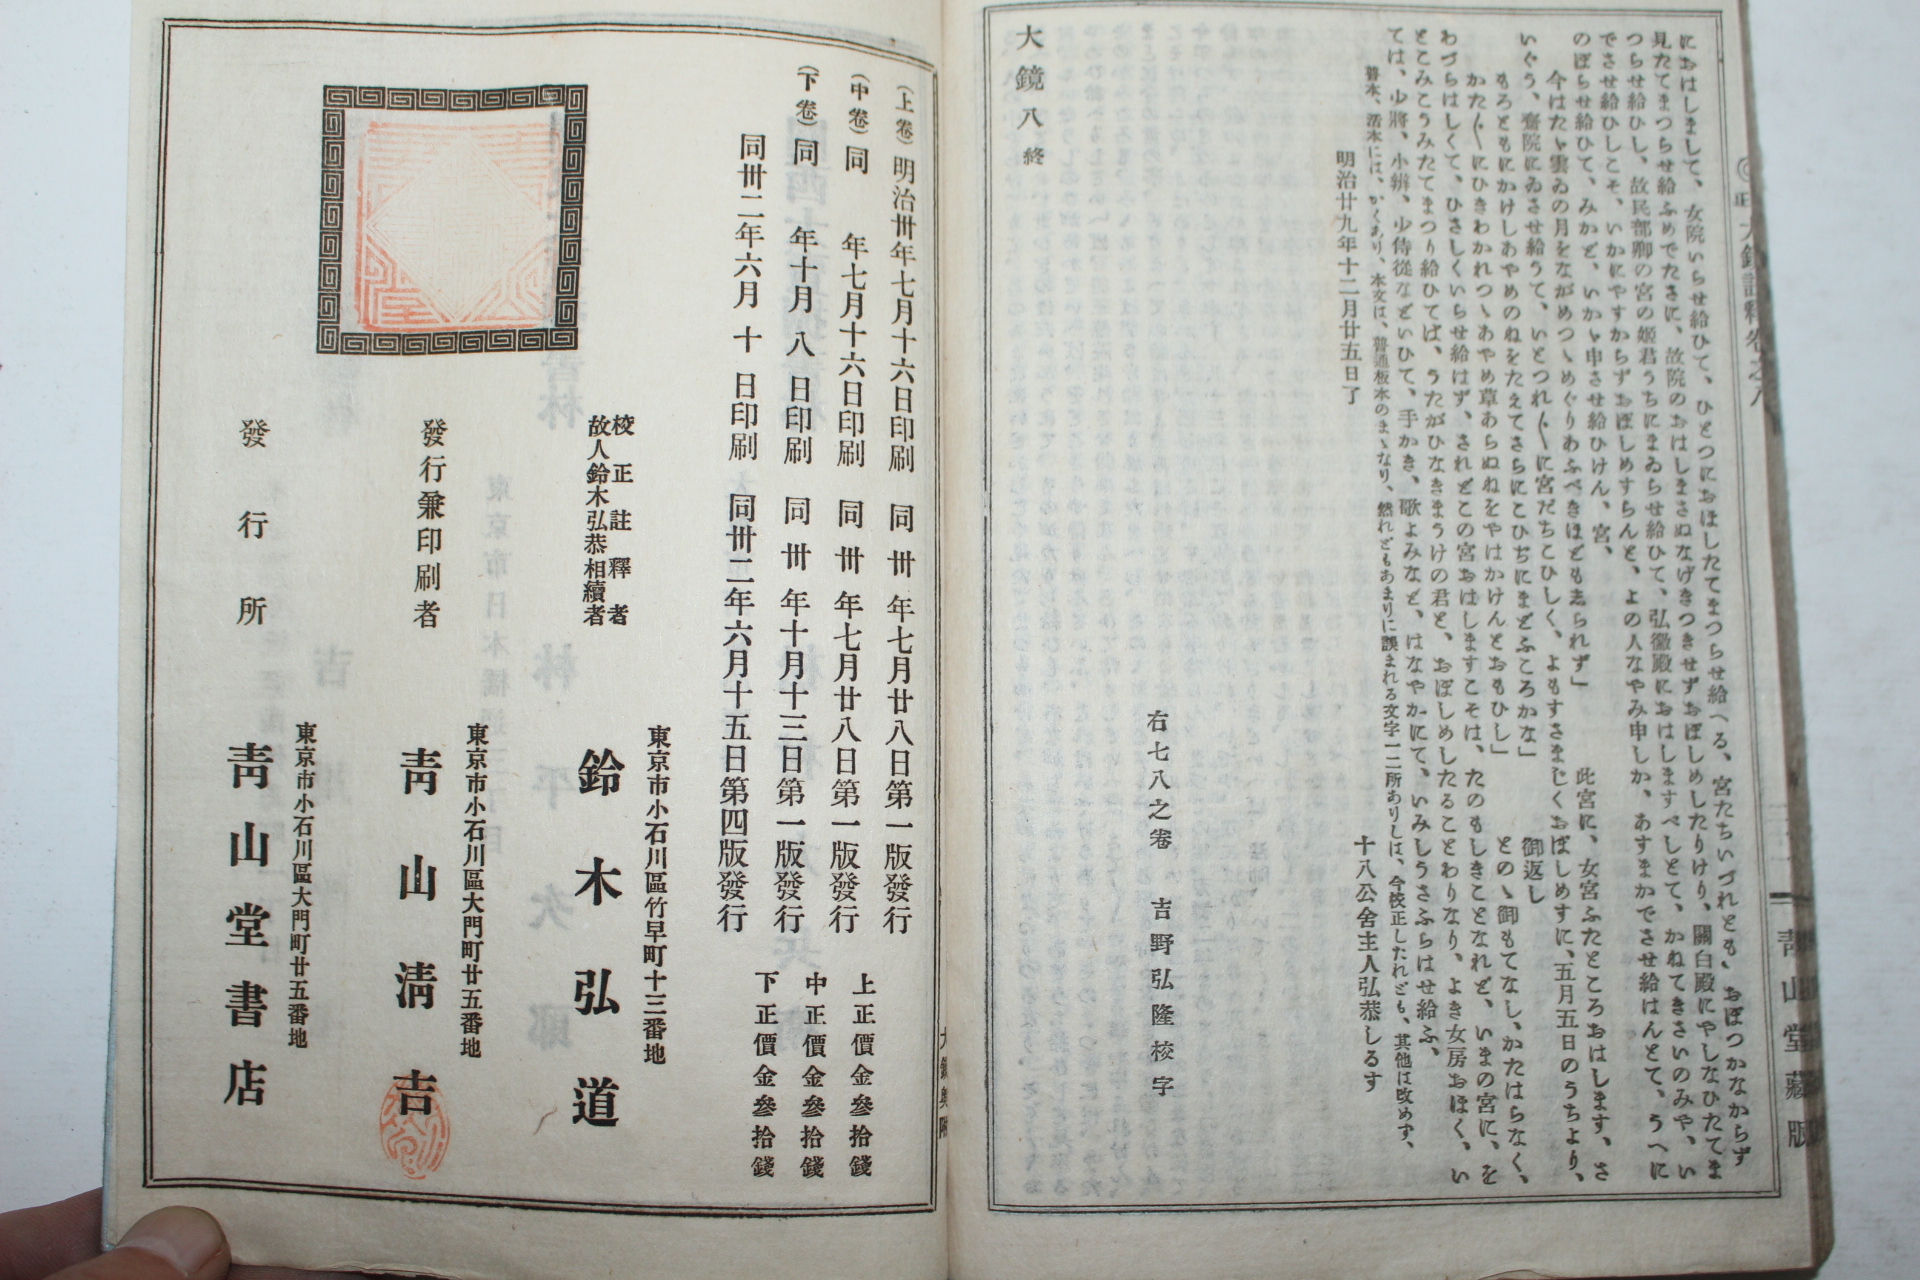 におはしまして、女院いらせ給ひて、ひとつにおほしたてまつらせ給へる、宮たちいづれとも、おぼつかなからず
見たてまつらせ給ふめでたさに、故院のおはしまさぬなげきつきせずおぼしめしたりけり、關白殿にやしなひたてま
つらせ給ひし、故民部卿の宮の姬君うちにまゐらせ給ひて、弘徽殿におはしますべしとて、かねてきさいのみや、い
でさせ給ひしこそ、いかにやすからずおぼしめすらんと、よの人なやみ申しか、あすまかでさせ給はんとて、うへに
のぼらせ給ひて、みかど、いかゝ申させ給ひけん、宮、
今はたゝ雲ゐの月をながめつゝめぐりあふべきほども志られず」
此宮に、女宮ふたところおはします、さ
いぐう、齋院にゐさせ給うて、いとつれ〴〵に宮だちこひしく、よもすさまじくおぼしめすに、五月五日のうちより、
もろともにかけしあやめのねをたえてさらにこひぢにまどふころかな」
御返し
かた〴〵にひきわかれつゝあやめ草あらぬねをやはかけんとおもひし」
とのゝ御もてなし、かたはらなく、
わづらはしくて、ひさしくいらせ給はず、されどこの宮おはしますこそは、たのもしきことなれど、いまの宮に、を
とこみこうみたてまつり給ひてば、うたがひなきまうけの君と、おぼしめしたることわりなり、よき女房おほく、い
ては、少將、小辨、少侍從などいひて、手かき、歌よみなど、はなやかにて、いみしうさふらはせ給ふ、
普本、活本には、かくあり、本文は、普通板本のまゝなり、然れどもあまりに誤まれる文字一二所ありしは、今校正したれども、其他は改めず、
明治廿九年十二月廿五日了
十八公舍主人弘恭しるす
右七八之卷 吉野弘隆校字
大鏡八終
靑山堂藏版
(上卷)明治卅年七月十六日印刷 同卅年七月廿八日第一版發行
(中卷)同 年七月十六日印刷 同卅年七月廿八日第一版發行
(下卷)同 年十月八日印刷 同卅年十月十三日第一版發行
同卅二年六月十日印刷 同卅二年六月十五日第四版發行
上正價金參拾錢
中正價金參拾錢
下正價金參拾錢
校正註釋者
故人鈴木弘恭相續者
東京市小石川區竹早町十三番地
鈴木弘道
發行兼印刷者
東京市小石川區大門町廿五番地
靑山淸吉
發行所
東京市小石川區大門町廿五番地
靑山堂書店